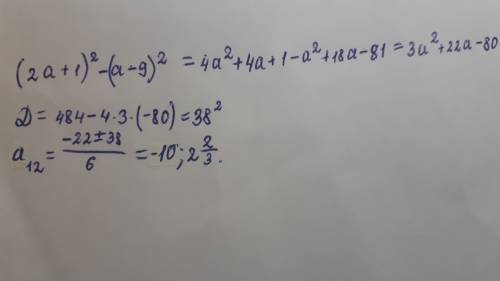 (2a+1)²-(a-9)² = 4a²+4a+1-a²+18a-81 = 3a²+22a-80
D = 484-4·3·(-80) = 38²
a₁₂ = \frac{-22±38}{6} = -10; 2\frac{2}{3}.